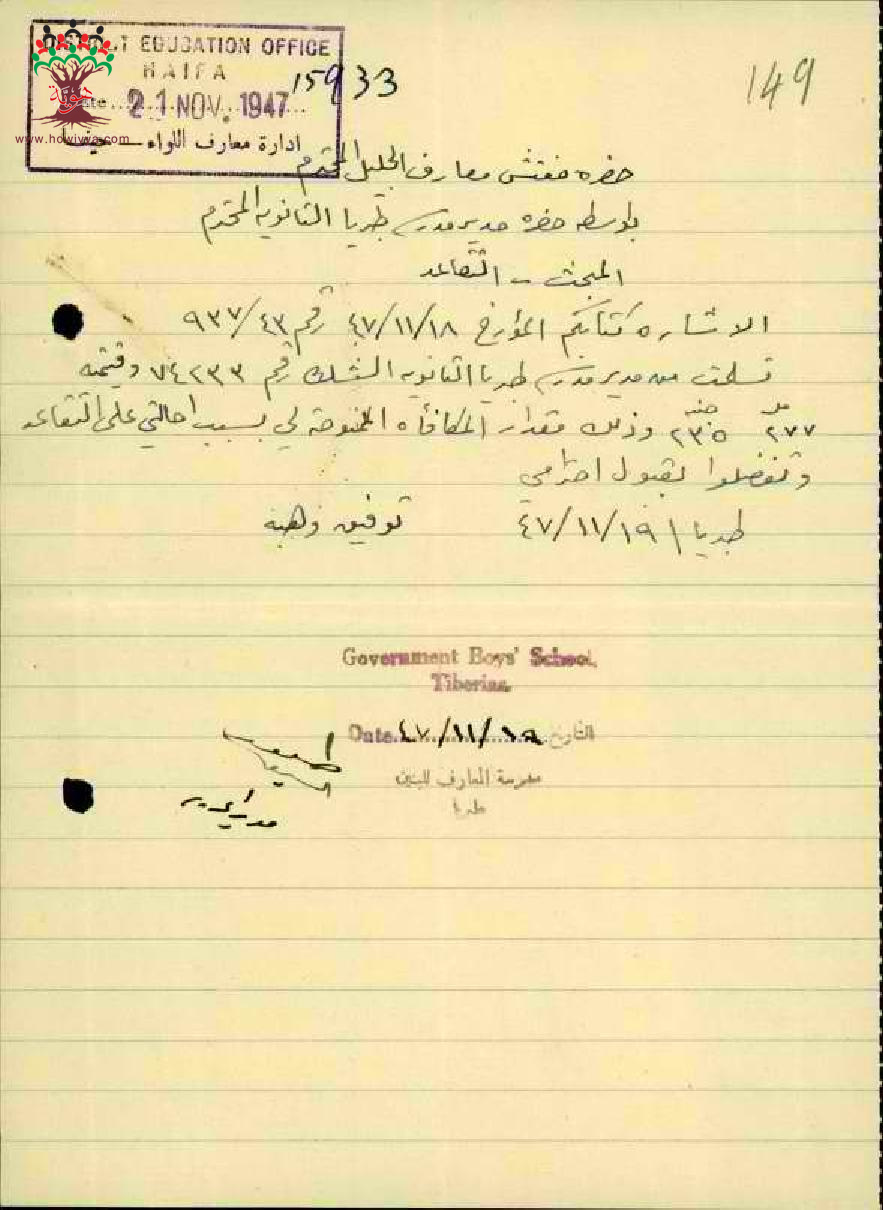 DISTRICT EDUCATION OFFICE
HAIFA
Date 21 NOV. 1947
ادارة معارف اللواء — حيفا
هوية
www.howiyya.com
15933
149
حضره مفتش معارف الجليل المحترم
بواسطه حضره مدير مدرسة طبريا الثانويه المحترم
المبحث - التقاعد
الاشاره كتابكم المؤرخ ٤٧/١١/١٨ رقم ٩٣٧/٤٣
تسلمت من مدير مدرسة طبريا الثانويه الشك رقم ٧٤٢٣٣ وقيمته
مل ٢٧٧ جنيه ٢٣٥ وذلك مقدار المكافأه الممنوحة لي بسبب احالتي على التقاعد
وتفضلوا بقبول احترامي
طبريا ٤٧/١١/١٩ توفيق وهبه
Government Boys' School,
Tiberias
Date ٤٧/١١/١٩ التاريخ
مدرسة المعارف للبنين
طبريا